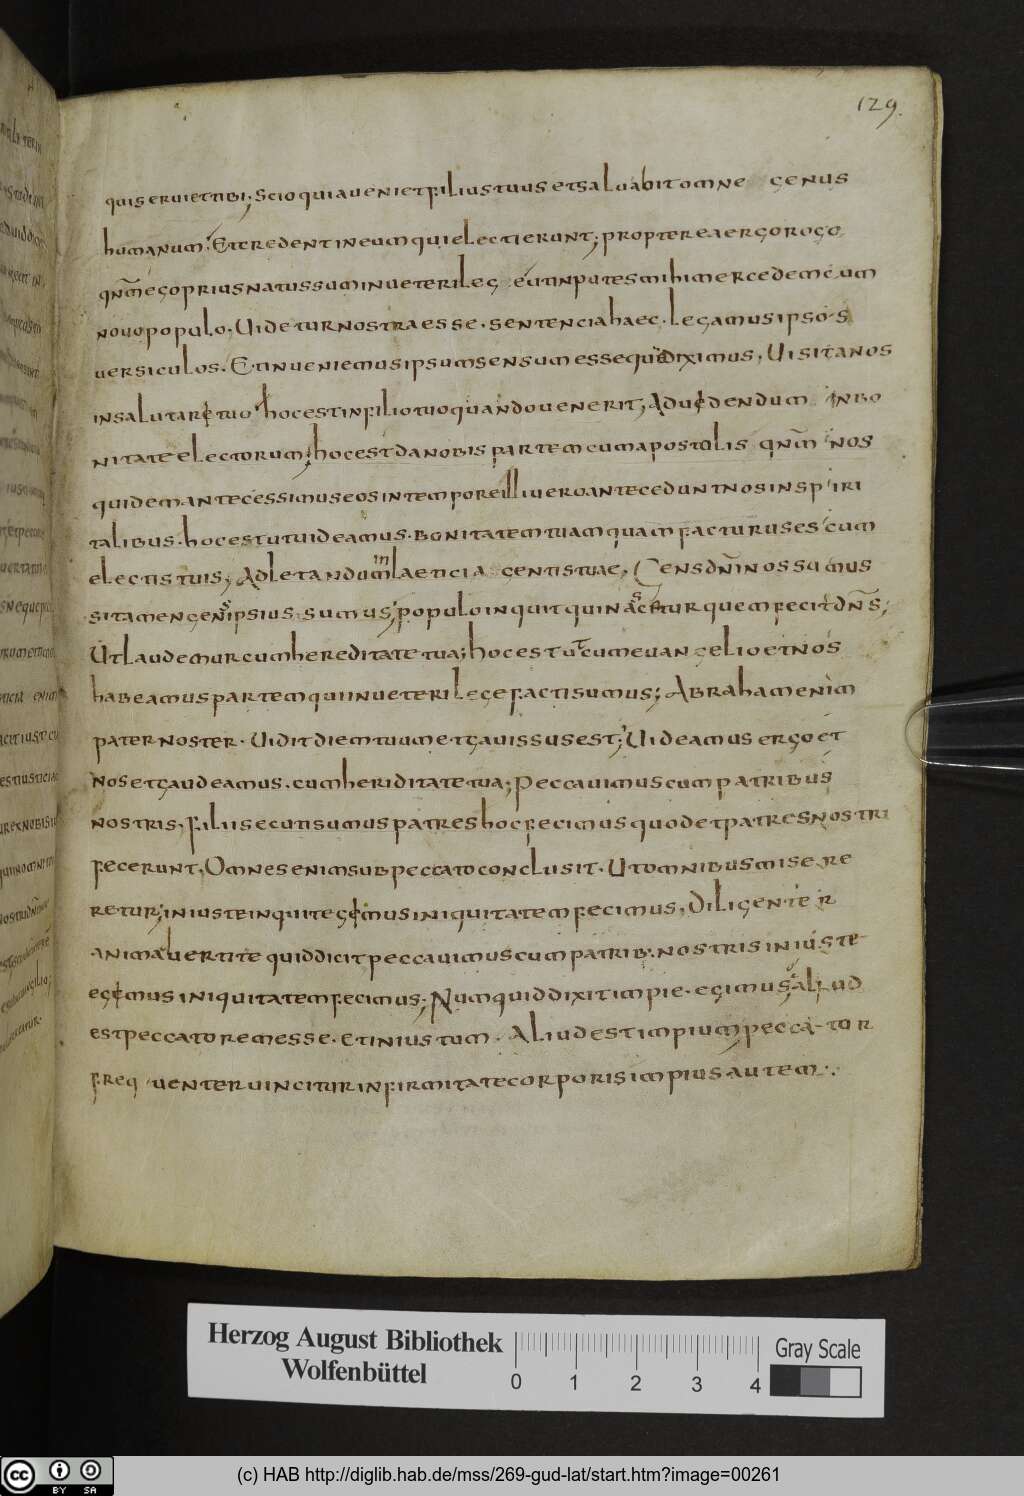 129.
quiseruiettibi; Scio quia ueniet filius tuus et saluabit omne genus
humanum. Et credent in eum qui electi erunt; propterea ergo rogo
qnm ego prius natus sum in ueteri leg e ut inputes mihi mercedem cum
nouo populo. Uidetur nostra esse. sentencia haec. legamus ipsos
uersiculos. Et inueniemus ipsum sensum esse que diximus, Uisita nos
in salutarę tuo hoc est in filio tuo quando uenerit, Ad uędendum in bo
nitate electorum, hoc est da nobis partem cum apostolis qnm nos
quidem antecessimus eos in tempore illi uero antecedunt nos in sp iri
talibus. hoc est ut uideamus. bonitatem tuam quam facturus es cum
electis tuis, Ad letandum in laeticia gentis tuae, Gens dni nos sumus
si tamen gens ipsius sumus; populo inquit qui nascetur quem fecit dns;
Ut laudemur cum hereditate tua; hoc est ut cum euangelio et nos
habeamus partem qui in ueteri lege facti sumus; Abraham enim
pater noster. uidit diem tuum et gauissus est; Uideamus ergo et
nos et gaudeamus. cum heriditate tua; Peccauimus cum patribus
nostris, filii secuti sumus patres hoc fecimus quod et patres nostri
fecerunt, Omnes enim sub peccato conclusit. Ut omnibus misere
retur; iniuste inquit egęmus iniquitatem fecimus, Diligenter
animaduertite quid dicit peccauimus cum patrib: nostris iniuste
egęmus iniquitatem fecimus; Numquid dixit impie. egimus aliud
est peccatorem esse. et iniustum. Aliud est impium peccator
freq uenter uincitur infirmitate corporis impius autem.
Herzog August Bibliothek
Wolfenbüttel
0 1 2 3 4
Gray Scale
cc BY SA
(c) HAB http://diglib.hab.de/mss/269-gud-lat/start.htm?image=00261